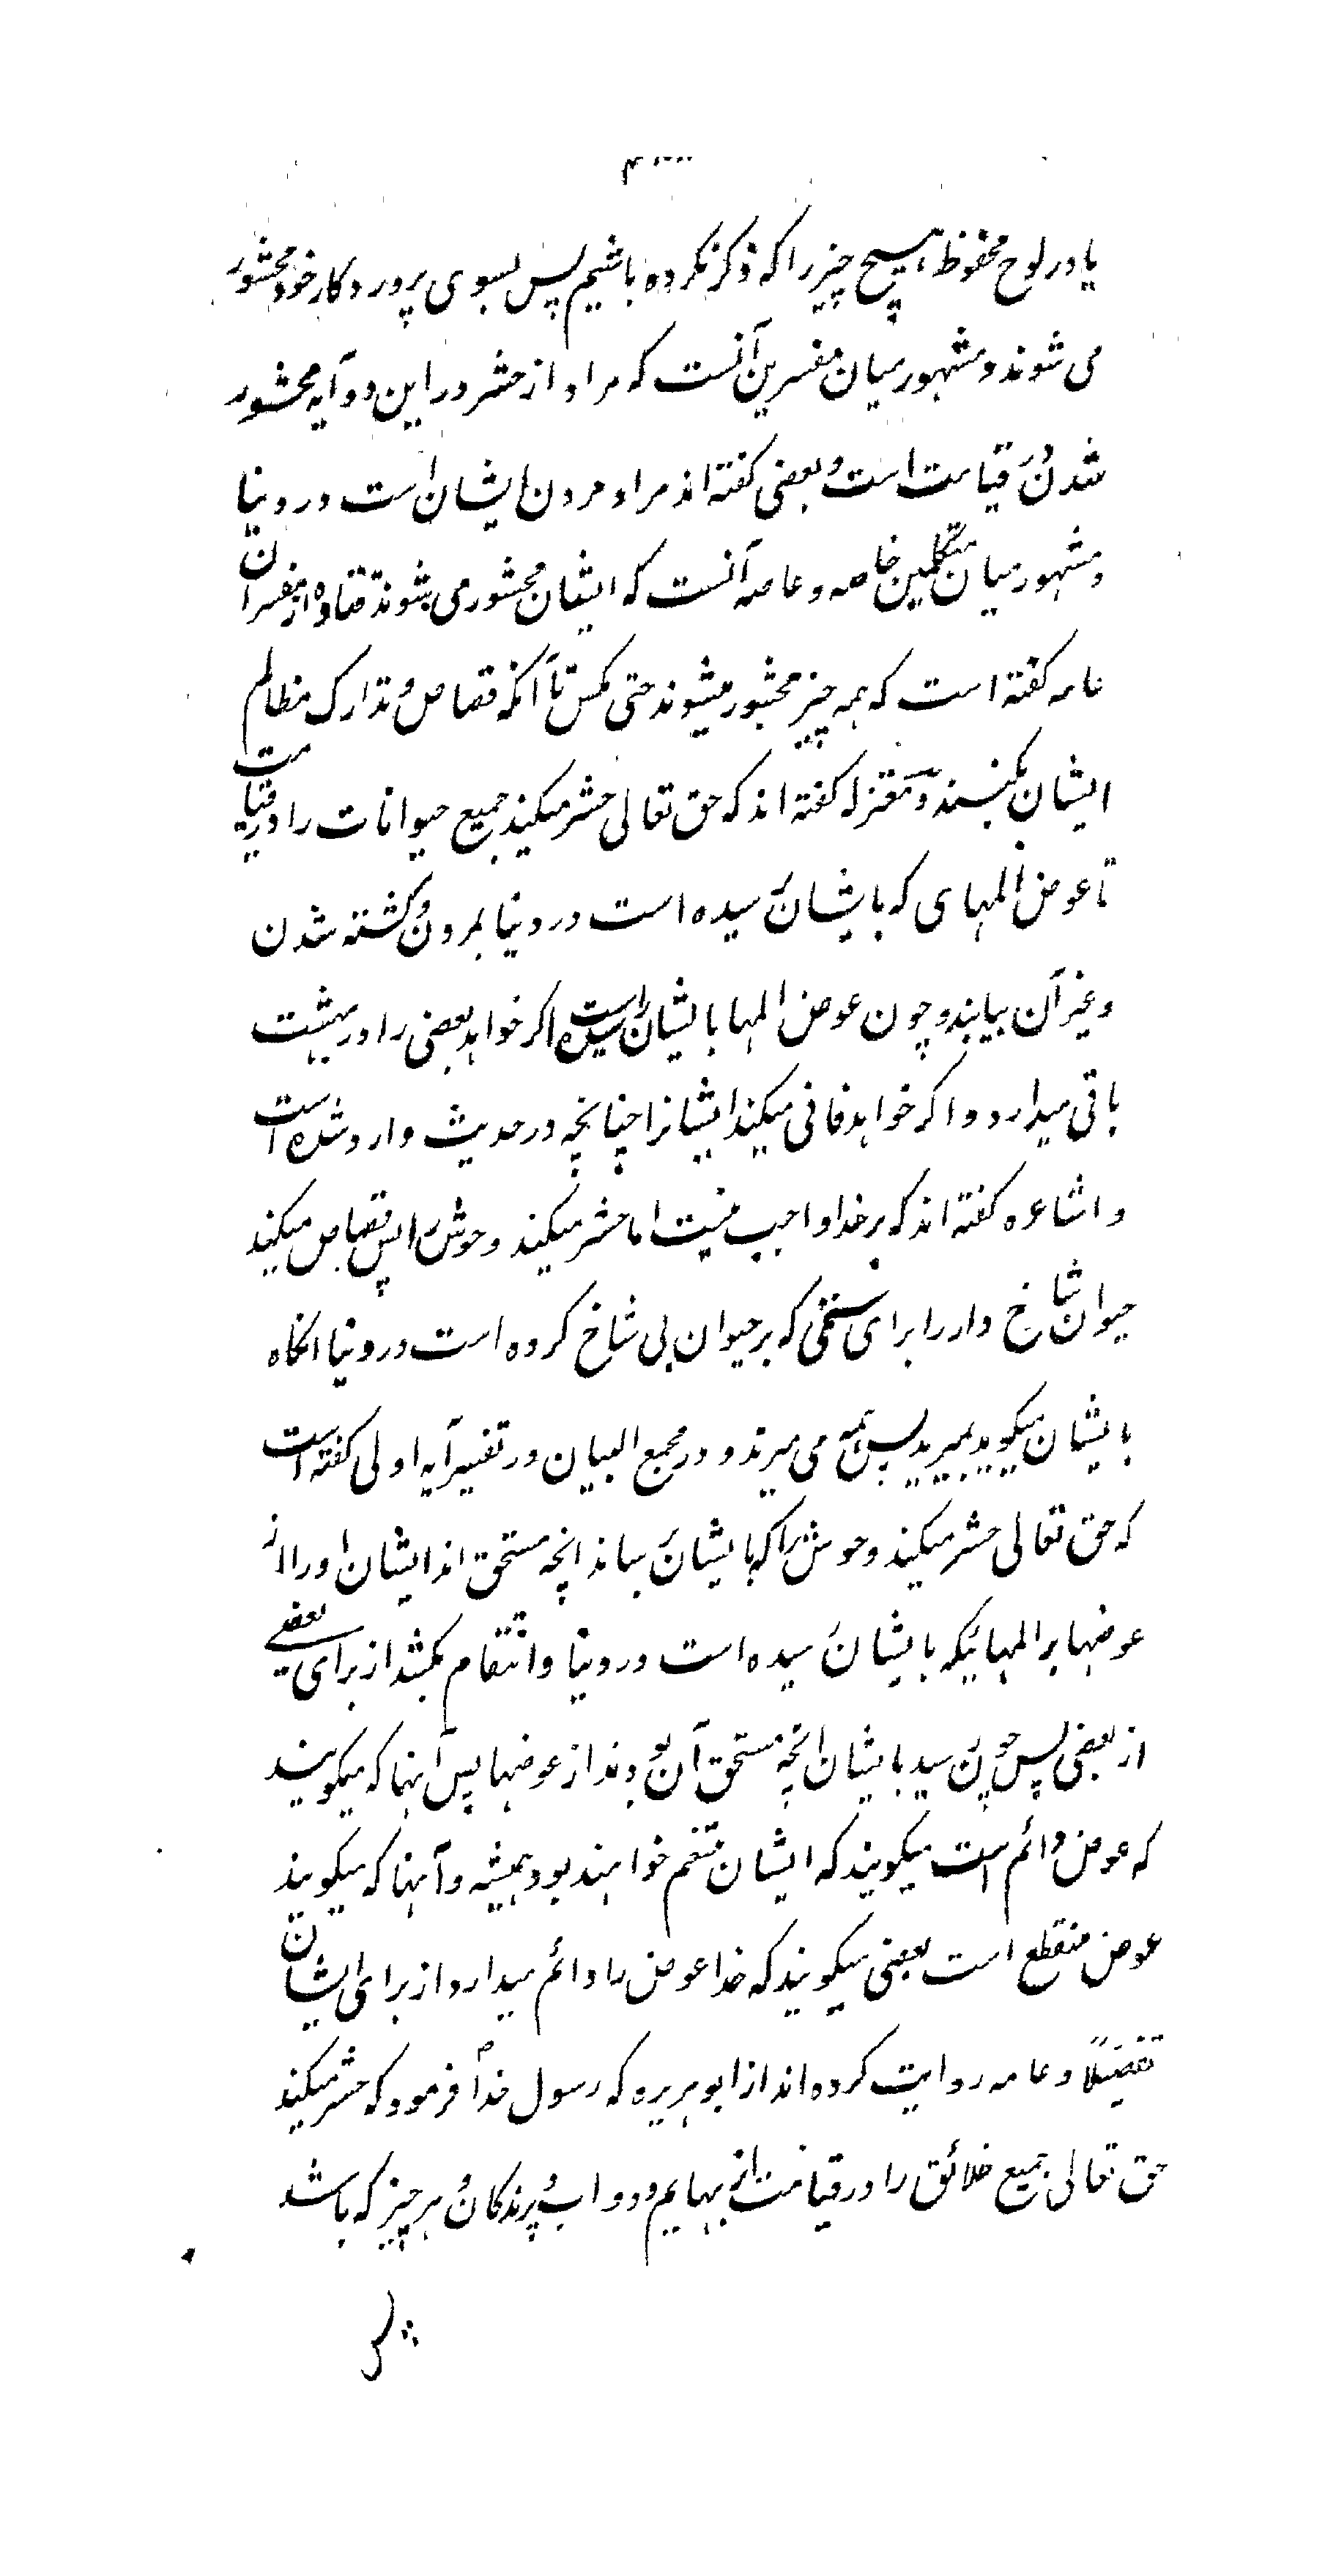 یا در لوح محفوظ هیچ چیز را که ذکر نکرده باشیم پس بسوی پروردکار خود محشور
می شوند و مشهور میان مفسرین آنست که مراد از حشر در این دو آیه محشور
شدن در قیامت است و بعضی کفته اند مراد مردن ایشان است در دنیا
و مشهور میان متکلمین خاصه و عامه آنست که ایشان محشور می شوند قتاده از مفسران
عامه کفته است که همه چیز محشور میشوند حتی مکس تا آنکه قصاص و تدارک مظالم
ایشان بکنند و معتزله کفته اند که حق تعالی حشر میکند جمیع حیوانات را در قیامت
تا عوض المهای که بایشان رسیده است در دنیا بمردن و کشته شدن
و غیر آن بیابند و چون عوض المها بایشان رسیده است اکر خواهد بعضی را در بهشت
باقی میدارد و اکر خواهد فانی میکند ایشانرا چنانچه در حدیث وارد شده است
و اشاعره کفته اند که بر خدا واجب نیست اما حشر میکند وحوش را پس قصاص میکند
حیوان شاخ دار را برای ستمی که بر حیوان بی شاخ کرده است در دنیا انکاه
بایشان میکوید بمیرید پس همه می میرند و در مجمع البیان در تفسیر آیه اولی کفته است
که حق تعالی حشر میکند وحوش را که بایشان رساند انچه مستحق اند ایشان اورا از
عوضها بر المهائیکه بایشان رسیده است در دنیا و انتقام بکشد از برای بعضی
از بعضی پس چون رسید بایشان انچه مستحق آن بودند از عوضها پس آنها که میکویند
که عوض دائم است میکویند که ایشان متنعم خواهند بود همیشه و آنها که میکویند
عوض منقطع است بعضی میکویند که خدا عوض را دائم میدارد از برای ایشان
تفضیلاً و عامه روایت کرده اند از ابو هریره که رسول خداؐ فرمود که حشر میکند
حق تعالی جمیع خلائق را در قیامت از بهایم و دواب و پرندکان و هر چیز که باشد
پس